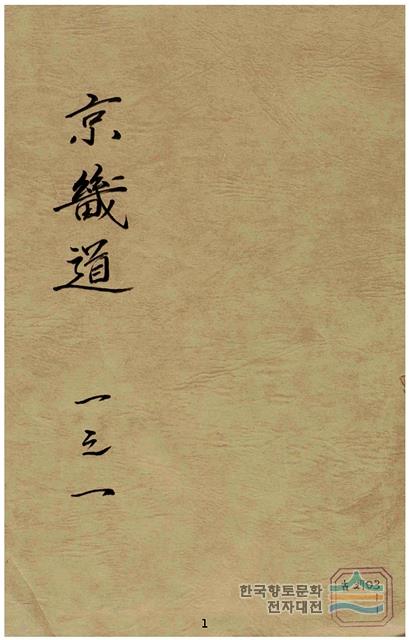 京畿道
一之一
한국향토문화
전자대전
1